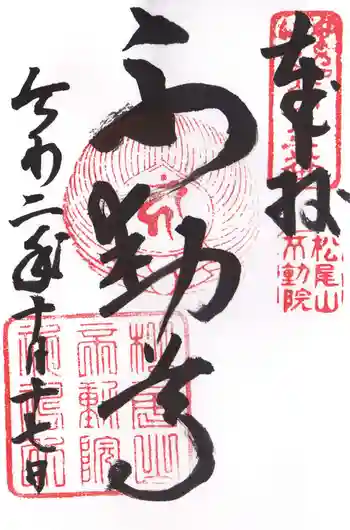 奉拝
松尾山
不動院
不動尊
令和二年十一月十七日
松尾山
不動院